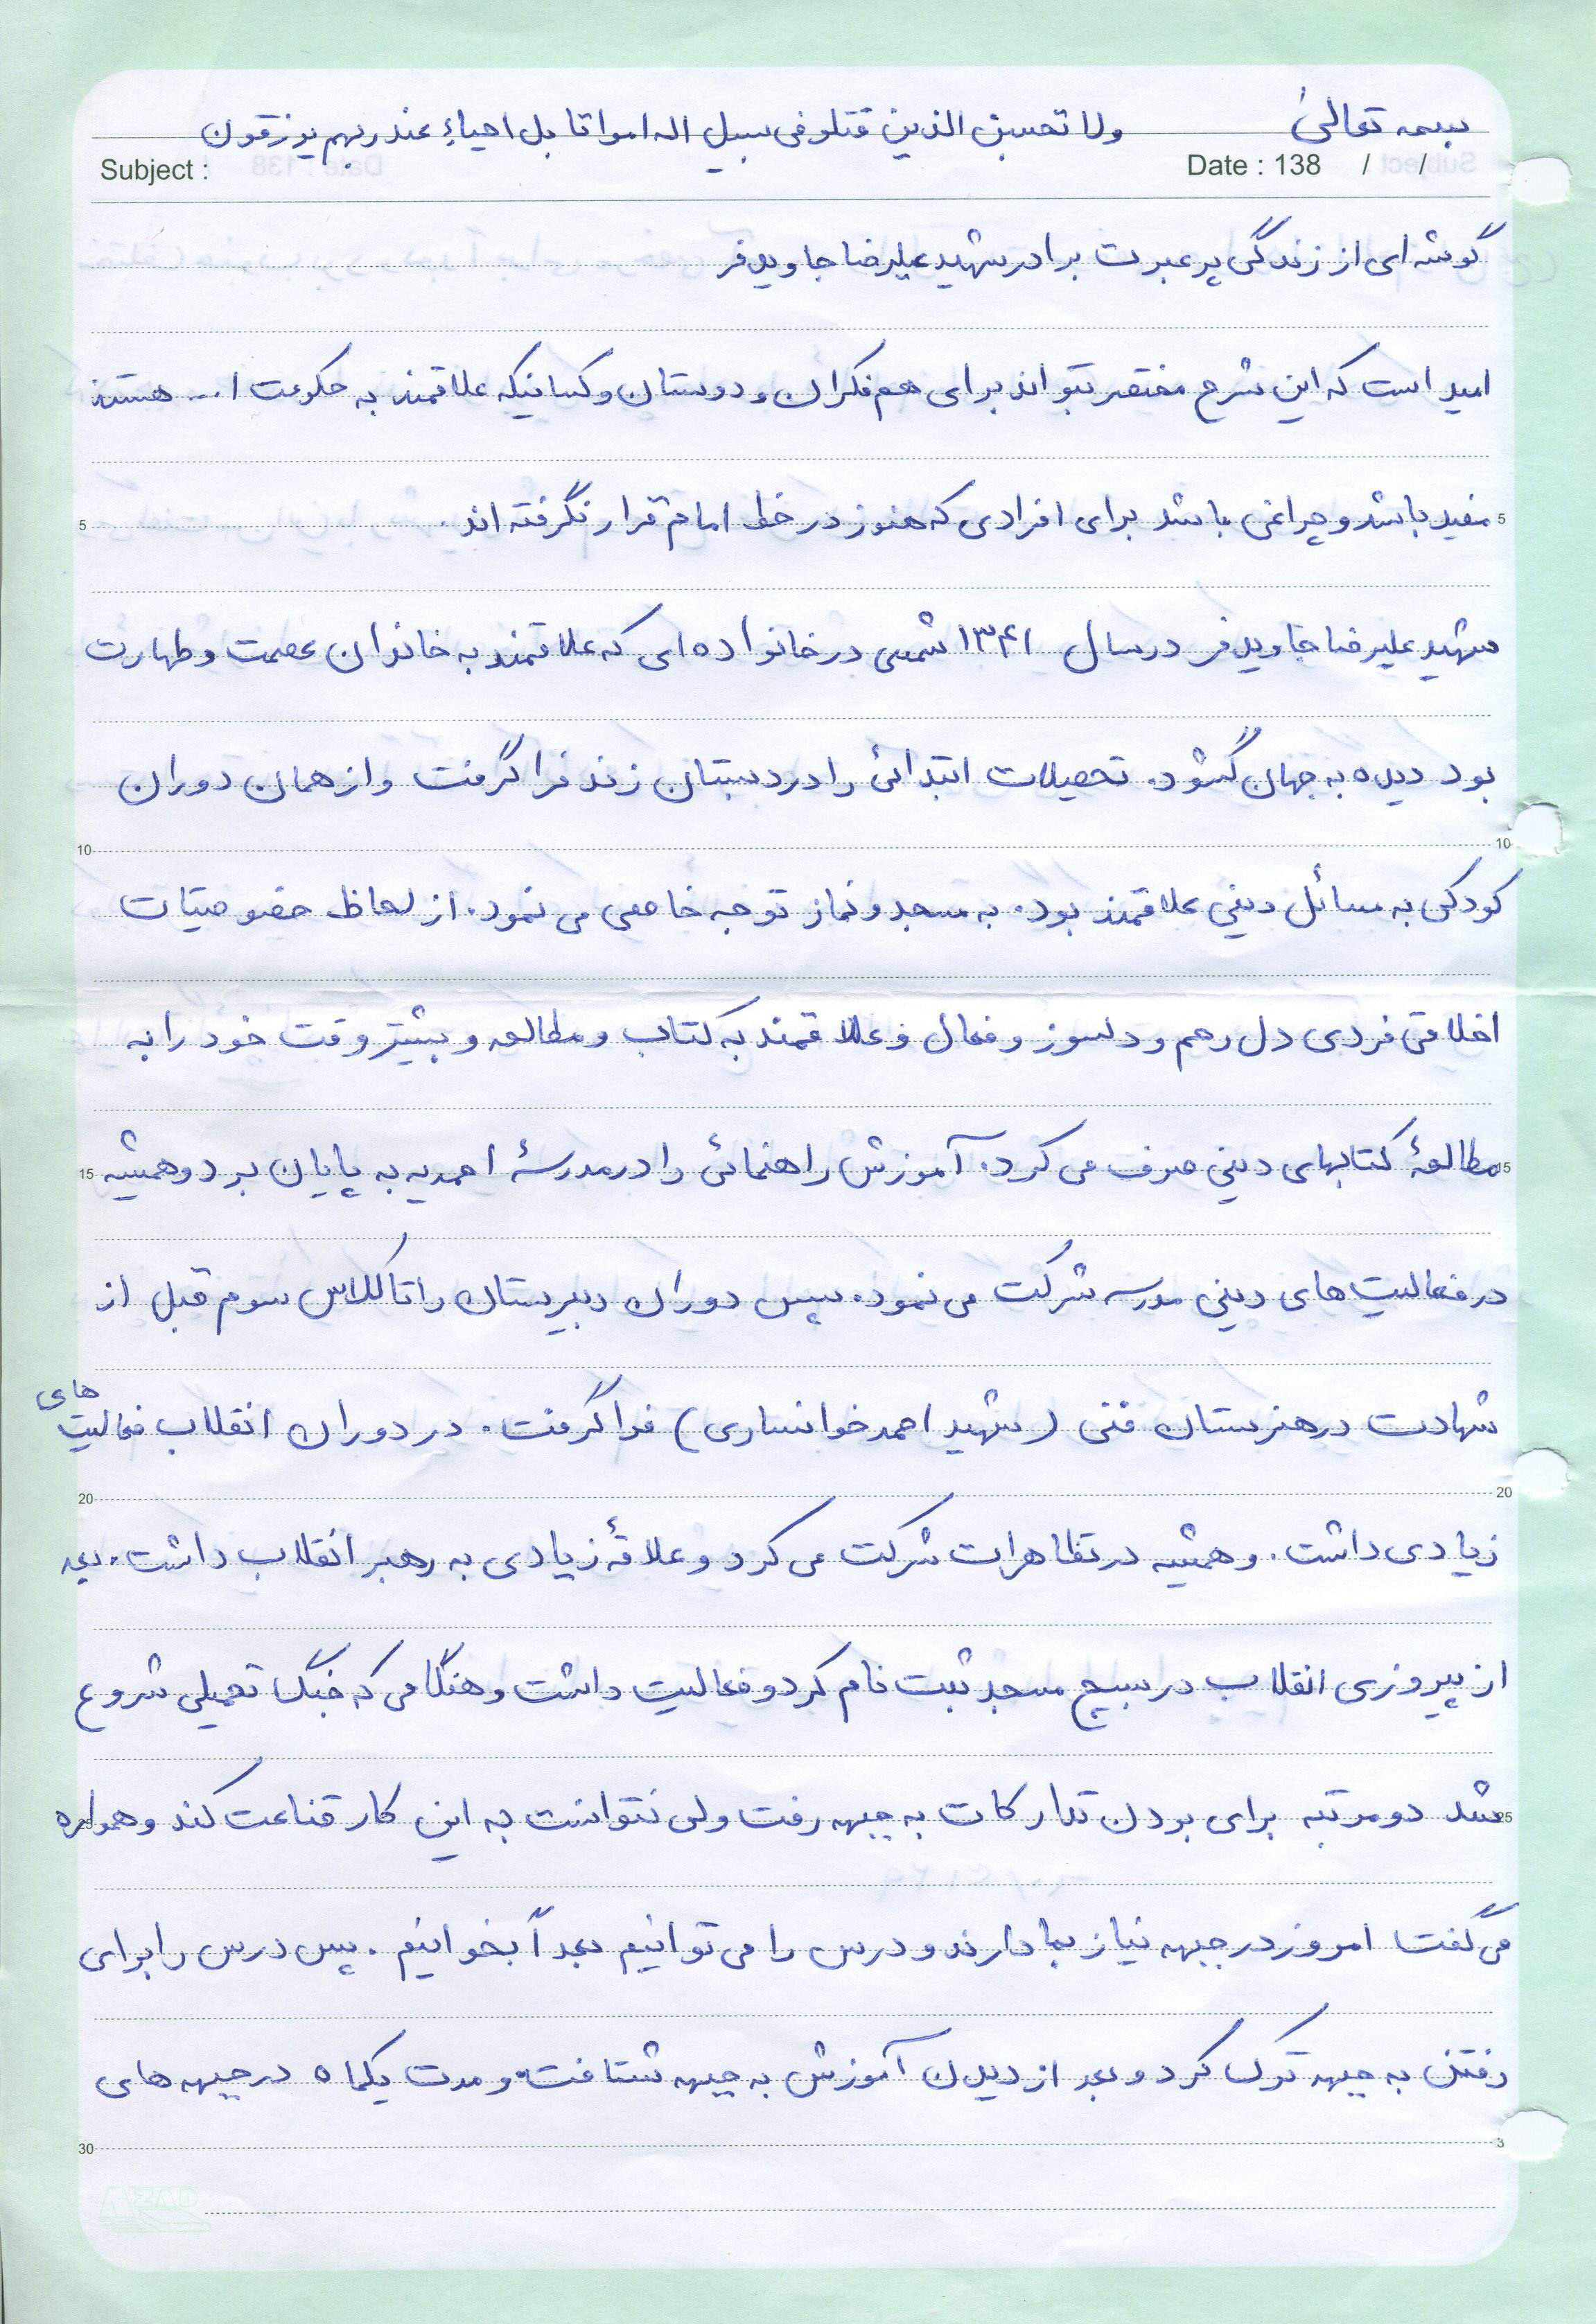 بسمه تعالیٰ ولا تحسبن الذین قتلو فی سبیل اله امواتا بل احیاءِ عند ربهم یوزقون
Subject : Date : 138 / /
گوشه ای از زندگی پر عبرت برادر شهید علیرضا جاوید فر
امید است که این شرح مختصر بتواند برای هم فکران و دوستان و کسانیکه علاقمند به حکومت ا... هستند
5 مفید باشد و چراغی باشد برای افرادی که هنوز در خط امام قرار نگرفته اند. 5
شهید علیرضا جاوید فر در سال ۱۳۴۱ شمسی در خانواده ای که علاقمند به خاندان عصمت و طهارت
بود دیده به جهان گشود. تحصیلات ابتدائی را در دبستان زند فرا گرفت و از همان دوران
10 10
کودکی به مسائل دینی علاقمند بود. به مسجد و نماز توجه خاصی می نمود. از لحاظ خصوصیّات
اخلاقی فردی دل رحم و دلسوز و فعال و علاقمند به کتاب و مطالعه و بیشتر وقت خود را به
15 مطالعهٔ کتابهای دینی صرف می کرد. آموزش راهنمائی را در مدرسهٔ احمدیه به پایان برد و همیشه 15
در فعالیت های دینی مدرسه شرکت می نمود. سپس دوران دبیرستان را تا کلاس سوم قبل از
شهادت در هنرستان فنی (شهید احمد خوانساری) فرا گرفت. در دوران انقلاب فعالیت های
20 20
زیادی داشت. و همیشه در تظاهرات شرکت می کرد و علاقهٔ زیادی به رهبر انقلاب داشت. بعد
از پیروزی انقلاب در بسیج مسجد ثبت نام کرد و فعالیت داشت و هنگامی که جنگ تحمیلی شروع
25 شد دو مرتبه برای بردن تدارکات به جبهه رفت ولی نتوانست به این کار قناعت کند و همواره 25
می گفت امروز در جبهه نیاز بما دارند و درس را می توانیم بعداً بخوانیم. پس درس را برای
رفتن به جبهه ترک کرد و بعد از دیدن آموزش به جبهه شتافت و مدت یکماه در جبهه های
30 3
AZAD